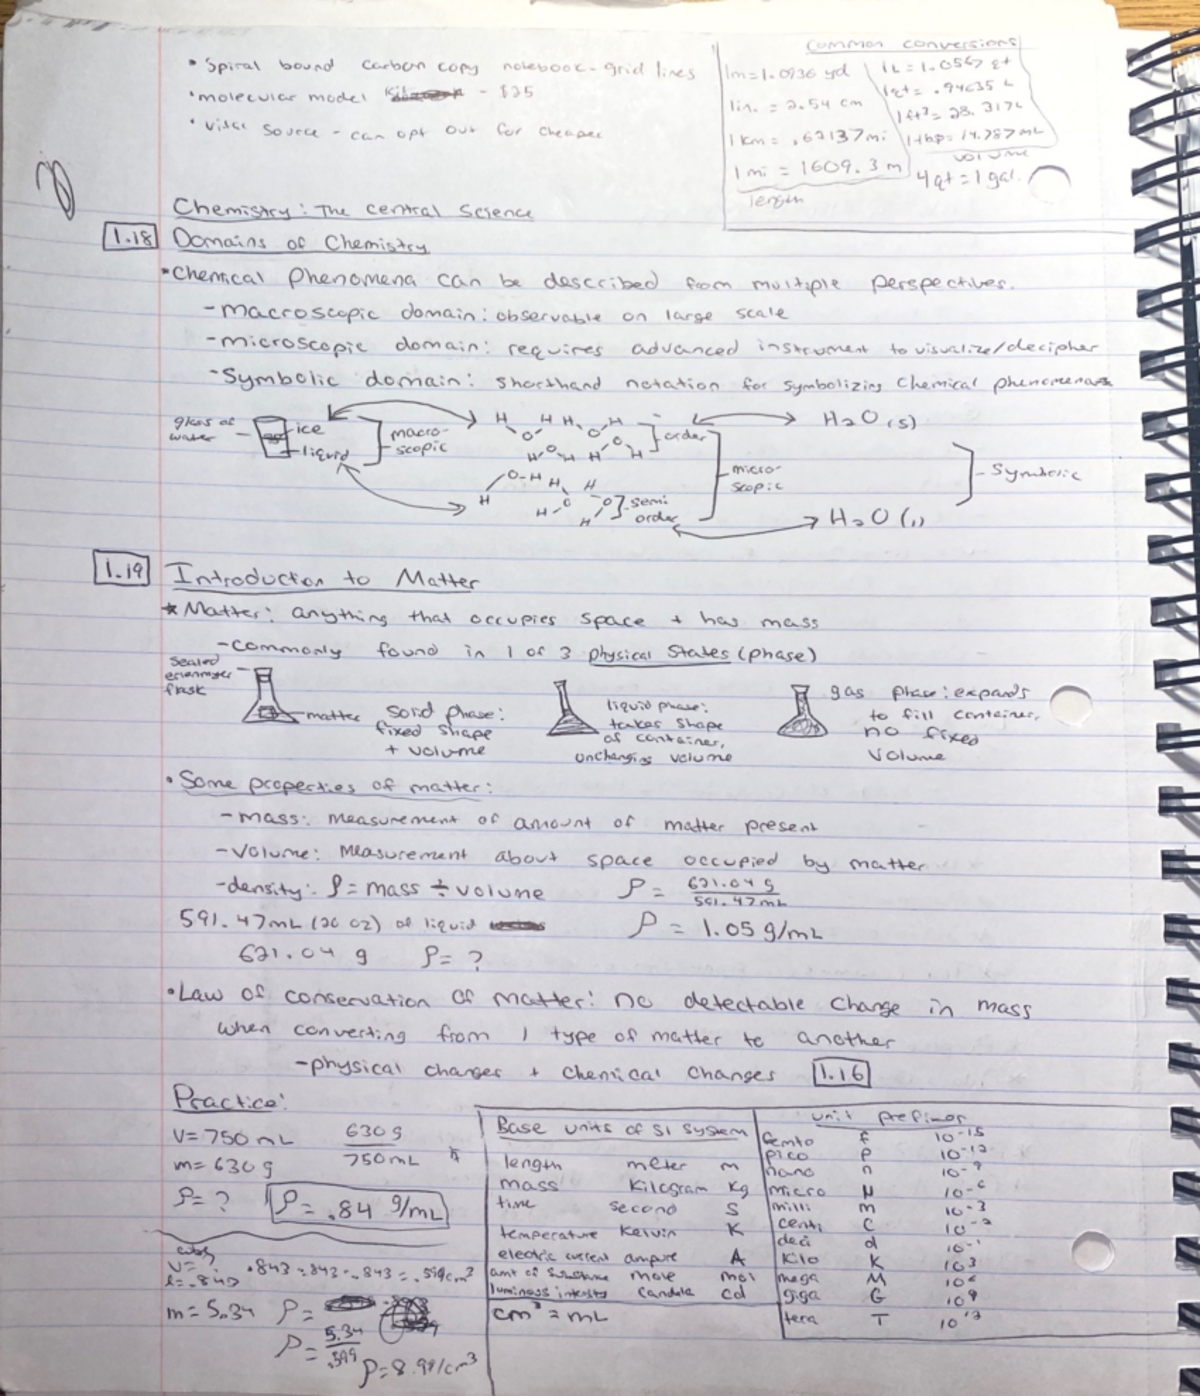 • Spiral bound carbon copy notebook - grid lines
• molecular model - $25
• vital source - can opt out for cheaper
Common conversions
1m = 1.0936 yd
1in. = 2.54 cm
1km = .62137mi
1 mi = 1609.3 m
length
1L = 1.0567 qt
1qt = .94635 L
1ft³ = 28.317L
1tbsp = 14.787mL
volume
4qt = 1gal.
Chemistry: The central Science
1.18 Domains of Chemistry
• Chemical phenomena can be described from multiple perspectives.
- macroscopic domain: observable on large scale
- microscopic domain: requires advanced instrument to visualize/decipher
- Symbolic domain: shorthand notation for symbolizing chemical phenomena
glass of water
ice
liquid
macro-scopic
H O H H O H
H O H H O H
order
H₂O (s)
micro-scopic
Symbolic
O-H H H
H H O O
H
semi order
H₂O (l)
1.19 Introduction to Matter
* Matter: anything that occupies space + has mass
- commonly found in 1 of 3 physical states (phase)
sealed erlenmyer flask
matter
solid phase: fixed shape + volume
liquid phase: takes shape of container, unchanging volume
gas phase: expands to fill container, no fixed volume
• Some properties of matter:
- mass: measurement of amount of matter present
- volume: measurement about space occupied by matter
- density: ρ = mass ÷ volume
ρ = 621.04 g / 591.47mL
591.47mL (20 oz) of liquid
ρ = 1.05 g/mL
621.04 g ρ = ?
• Law of conservation of matter: no detectable change in mass
when converting from 1 type of matter to another
- physical changes + chemical changes 1.16
Practice:
V = 750 mL
m = 630 g
ρ = ?
630 g / 750 mL
ρ = .84 g/mL
cube
V = ?
l = .843
.843 · .843 · .843 = .599cm³
m = 5.34 ρ =
ρ = 5.34 / .599
ρ = 8.91/cm³
Base units of SI system
length meter m
mass kilogram kg
time second s
temperature kelvin K
electric current ampure A
amt of substance mole mol
luminous intensity candela cd
cm³ = mL
unit prefixes
femto f 10⁻¹⁵
pico p 10⁻¹²
nano n 10⁻⁹
micro μ 10⁻⁶
milli m 10⁻³
centi c 10⁻²
deci d 10⁻¹
kilo k 10³
mega M 10⁶
giga G 10⁹
tera T 10¹²